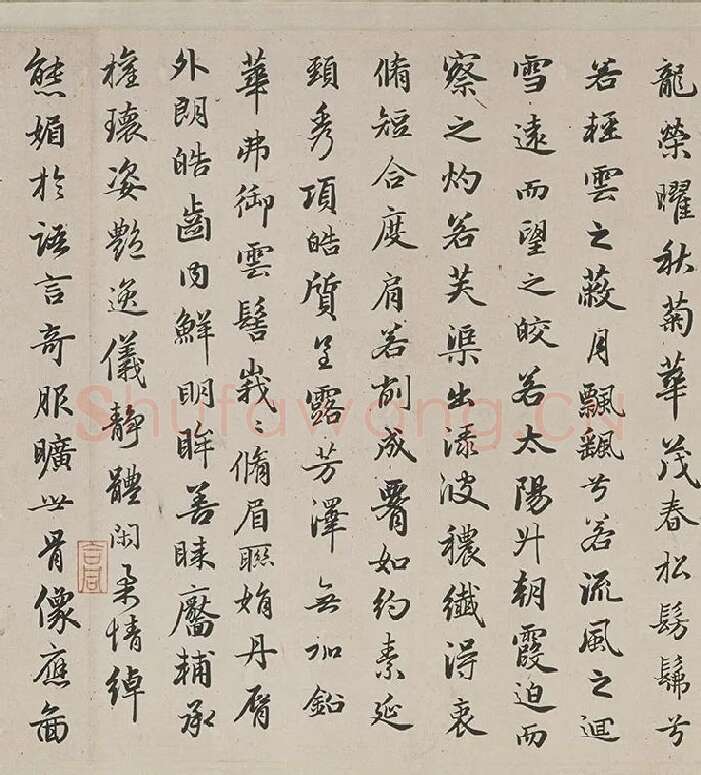 龍榮曜秋菊華茂春松髣髴兮
若輕雲之蔽月飄颻兮若流風之迴
雪遠而望之皎若太陽升朝霞迫而
察之灼若芙渠出渌波穠纖得衷
脩短合度肩若削成腰如約素延
頸秀項皓質呈露芳澤無加鉛
華弗御雲髻峩〻脩眉聯娟丹脣
外朗皓齒內鮮明眸善睞靨輔承
權瓌姿艷逸儀靜體閑柔情綽
態媚於語言奇服曠世骨像應圖
Shufawang.CN